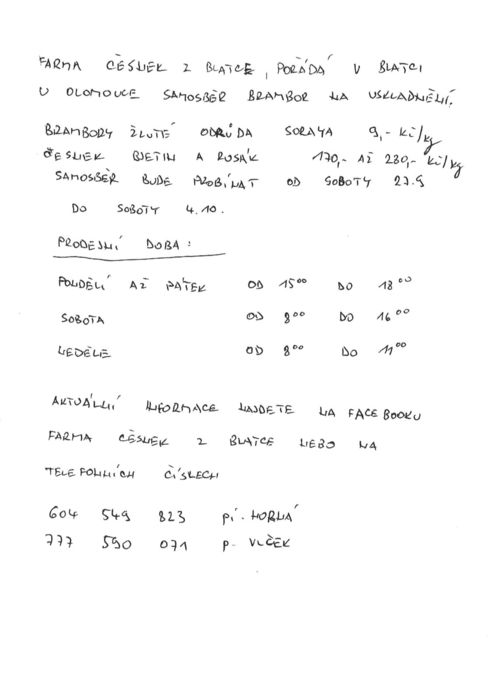 FARMA ČESNEK Z BLATCE, POŘÁDÁ V BLATCI
U OLOMOUCE SAMOSBĚR BRAMBOR NA USKLADNĚNÍ.
BRAMBORY ŽLUTÉ ODRŮDA SORAYA 9,- Kč/kg
ČESNEK BJETIN A RUSÁK 170,- AŽ 230,- Kč/kg
SAMOSBĚR BUDE PROBÍHAT OD SOBOTY 27.9
DO SOBOTY 4.10.
PRODEJNÍ DOBA:
PONDĚLÍ AŽ PÁTEK OD 15⁰⁰ DO 18⁰⁰
SOBOTA OD 8⁰⁰ DO 16⁰⁰
NEDĚLE OD 8⁰⁰ DO 11⁰⁰
AKTUÁLNÍ INFORMACE NAJDETE NA FACEBOOKU
FARMA ČESNEK Z BLATCE NEBO NA
TELEFONNÍCH ČÍSLECH
604 549 823 pí. HORNÁ
777 590 071 p. VLČEK